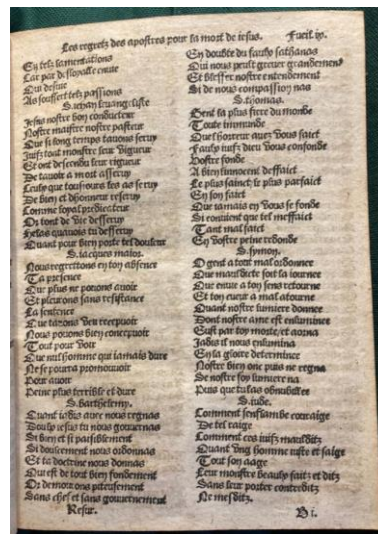 Les regretz des apostres pour la mort de iesus. Fueil. iy.
En telz lamentations
Car par desloyalle enuie
Qui desuie
As souffert telz passions
S. iehan euangeliste
Jesus nostre bon conducteur
Nostre maistre nostre pasteur
Que si long temps tauons seruy
Juifz tont monstre leur vigueur
Et ont descendu leur rigueur
De tauoir a mort asseruy
Celuy que tousiours les as seruy
De bien et dhonneur reseruy
Comme loyal predicateur
Or tont de vie desseruy
Helas quauois tu desseruy
Quant pour bien porte tel douleur
S. iacques maior.
Nous regrettons en ton absence
Ta presence
Que plus ne pouons auoir
Et pleurons sans resistance
La sentence
Que tauons veu receptuoir
Nous pouons bien conceptuoir
Tout pour voir
Que nul homme qui iamais dure
Ne se pourra promouuoir
Pour auoir
Peine plus terrible et dure
S. barthelemy.
Quant iadis auec nous regnas
Doulx iesus tu nous gouuernas
Si bien et si paisiblement
Si doulcement nous ordonnas
Et ta doctrine nous donnas
Qui est de tout bien fondement
Or demourons piteusement
Sans chef et sans gouuernement
Resur.
En doubte du faulx sathanas
Qui nous peult greuer grandement
Et blesser nostre entendement
Si de nous compassion nas
S. thomas.
Gent la plus fiere du monde
Toute immunde
Quel horreur auez vous faict
Faulx iuifz dieu vous confonde
Vostre fonde
A bien linnocent deffaict
Le plus sainct le plus parfaict
En son faict
Que iamais en vous se fonde
Si conuient que tel meffaict
Tant mal faict
En vostre peine redonde
S. symon.
O gent a tout mal ordonnee
Que mauldicte soit la iournee
Que enuie a ton sens retourne
Et ton cueur a mal atourne
Quant nostre lumiere donnee
Dont nostre ame est enluminee
Gist par toy morte et aorna
Jadis il nous enlumina
En la gloire determinee
Nostre bien onc puis ne regna
Se nostre soy lumiere na
Puis que tu las obnubilee
S. iude.
Comment sensflambe couraige
De tel raige
Comment ces iuifz maulditz
Quant vng homme iuste et saige
Tout son aage
Leur monstre beaulx faitz et ditz
Sans leur porter contreditz
Ne mesditz.
B i.